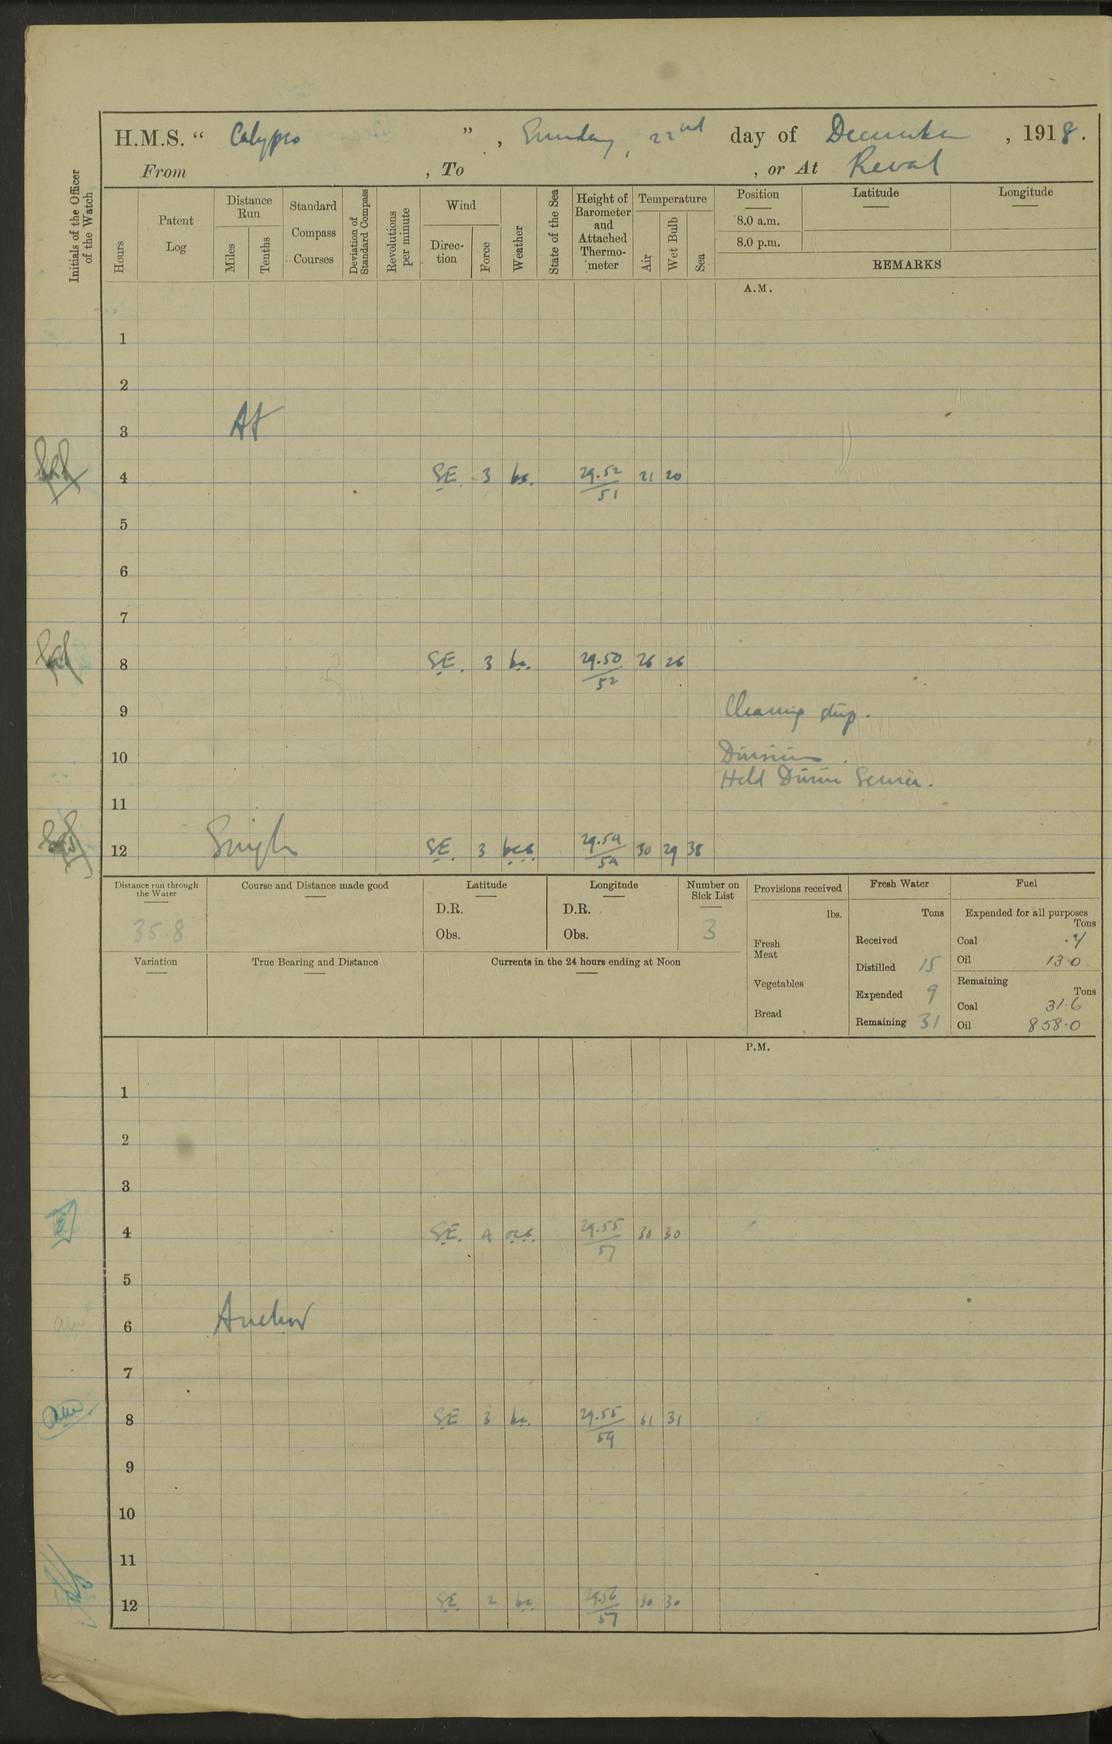 H.M.S. “ Calypso ”, Sunday, 22nd day of December, 1918.
From , To , or At Reval
Initials of the Officer of the Watch
Hours
Patent Log
Distance Run
Miles
Tenths
Standard Compass Courses
Deviation of Standard Compass
Revolutions per minute
Wind
Direction
Force
Weather
State of the Sea
Height of Barometer and Attached Thermometer
Temperature
Air
Wet Bulb
Sea
Position
Latitude
Longitude
8.0 a.m.
8.0 p.m.
REMARKS
A.M.
1
2
3 At
4 SE. 3 bc. 29.52/51 21 20
5
6
7
8 SE. 3 bc. 29.50/52 26 26
9 Cleaning ship.
10 Divisions.
Held Divine Service.
11
12 Single SE. 3 bcs. 29.54/54 30 29 38
Distance run through the Water
35.8
Course and Distance made good
Latitude
D.R.
Obs.
Longitude
D.R.
Obs.
Number on Sick List
3
Variation
True Bearing and Distance
Currents in the 24 hours ending at Noon
Provisions received
lbs.
Fresh Meat
Vegetables
Bread
Fresh Water
Tons
Received
Distilled 15
Expended 9
Remaining 31
Fuel
Expended for all purposes
Tons
Coal .4
Oil 13.0
Remaining
Tons
Coal 31.6
Oil 858.0
P.M.
1
2
3
4 SE. 4 ocs. 29.55/57 30 30
5
6 Anchor
7
8 SE 3 bc. 29.55/59 31 31
9
10
11
12 SE 2 bc 29.56/57 30 30